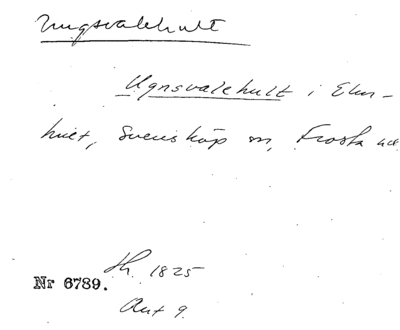 Ungsvalehult
Ugnsvalehult i Elm-
huet, Svensköp sn, Frosta hd
Nr 6789.
Sk. 1825
Akt 9.